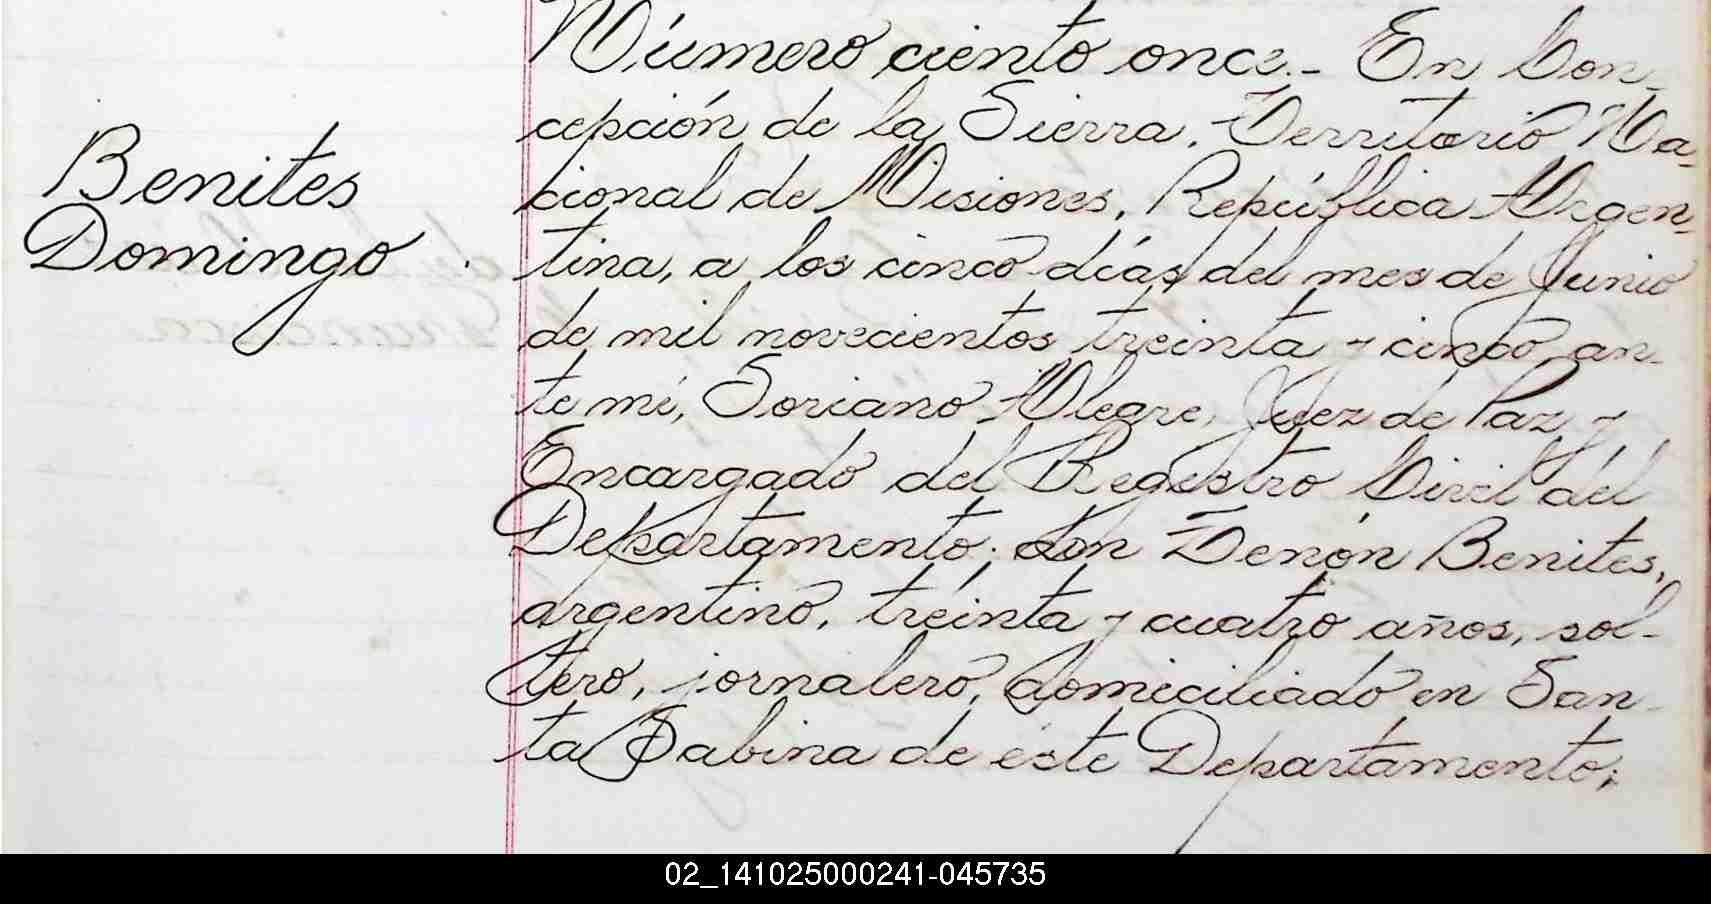 Benites
Domingo
Número ciento once.- En Con-
cepción de la Sierra, Territorio Na-
cional de Misiones, República Argen-
tina, a los cinco días del mes de Junio
de mil novecientos treinta y cinco, an-
te mí, Soriano Alegre, Juez de Paz y
Encargado del Registro Civil del
Departamento; don Zenón Benites,
argentino, treinta y cuatro años, sol-
tero, jornalero, domiciliado en San-
ta Sabina de éste Departamento;
02_141025000241-045735